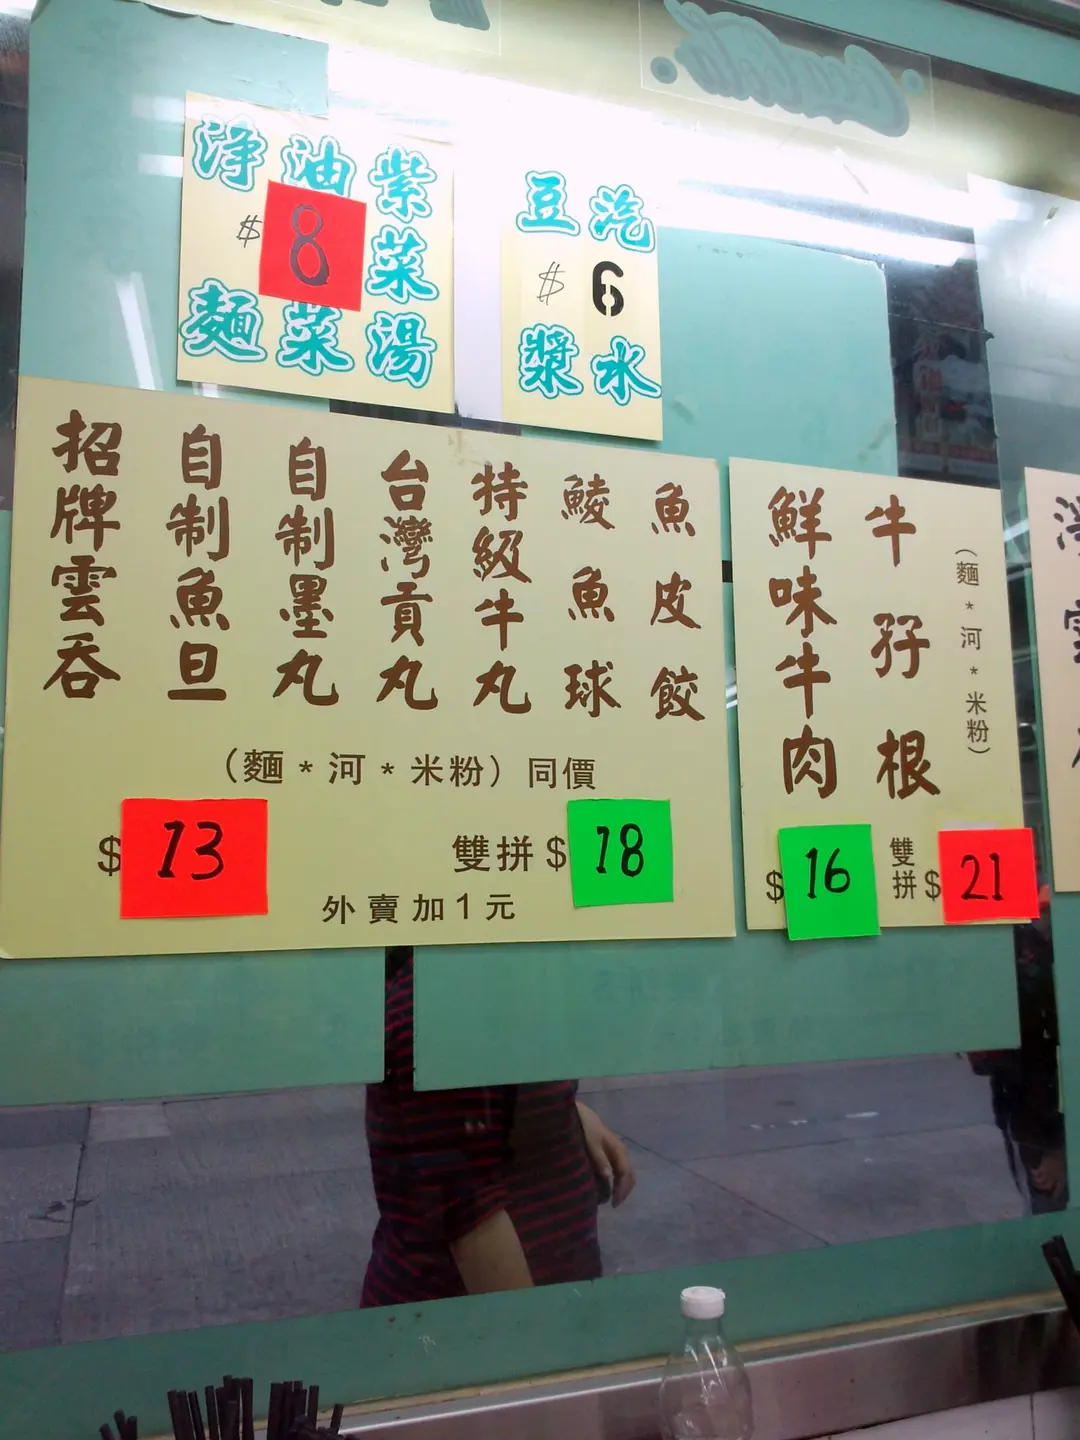 Coca-Cola
淨麵
油菜
紫菜湯
$8
豆漿
汽水
$6
招牌雲吞
自制魚旦
自制墨丸
台灣貢丸
特級牛丸
鯪魚球
魚皮餃
（麵*河*米粉）同價
$13
雙拼$18
外賣加1元
鮮味牛肉
牛孖根
（麵*河*米粉）
$16
雙拼$21